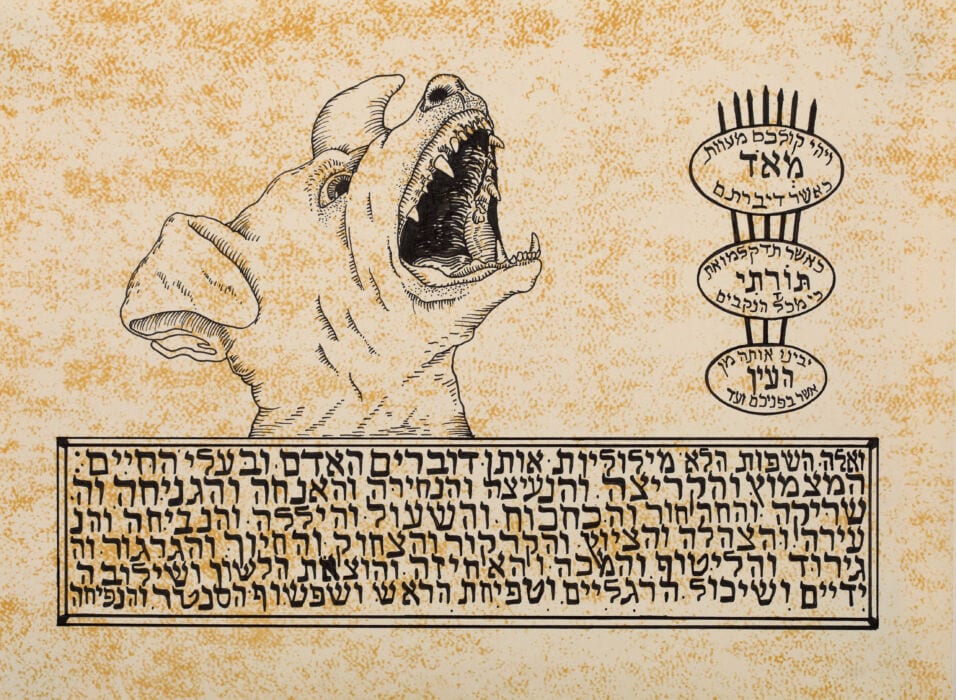 ויהי קולכם מצוות
מְאד
כאשר דיברתם
כאשר תדקלמו את
תּוֹרתי
כי מכל הנקבים
יבינו אותה מן
העין
אשר בפניכם ועד
ואלה השפות הלא מילוליות אותן דוברים האדם ובעלי החיים:
המצמוץ והקריצה והנעיצה והנחירה והאנחה והגניחה וה
שריקה והחרחור והכחכוח והשעול והיללה והנביחה והנ
עירה והצהלה והציוץ והקרקור והצחוק והחיוך והגרגור וה
גירוד והליטוף והמכה והאחיזה והוצאת הלשון ושילוב ה
ידיים ושיכול הרגליים וטפיחת הראש ושפשוף הסנטר והנפיחה